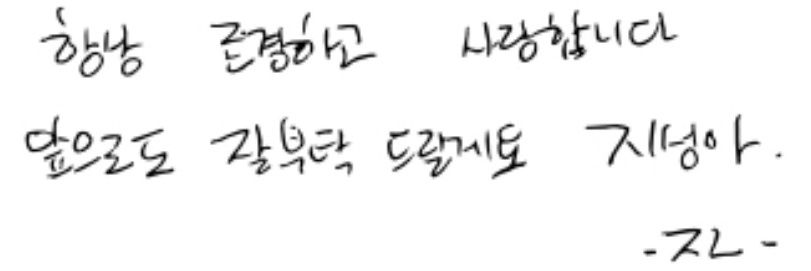 항상 존경하고 사랑합니다
앞으로도 잘부탁 드릴게요 지성아.